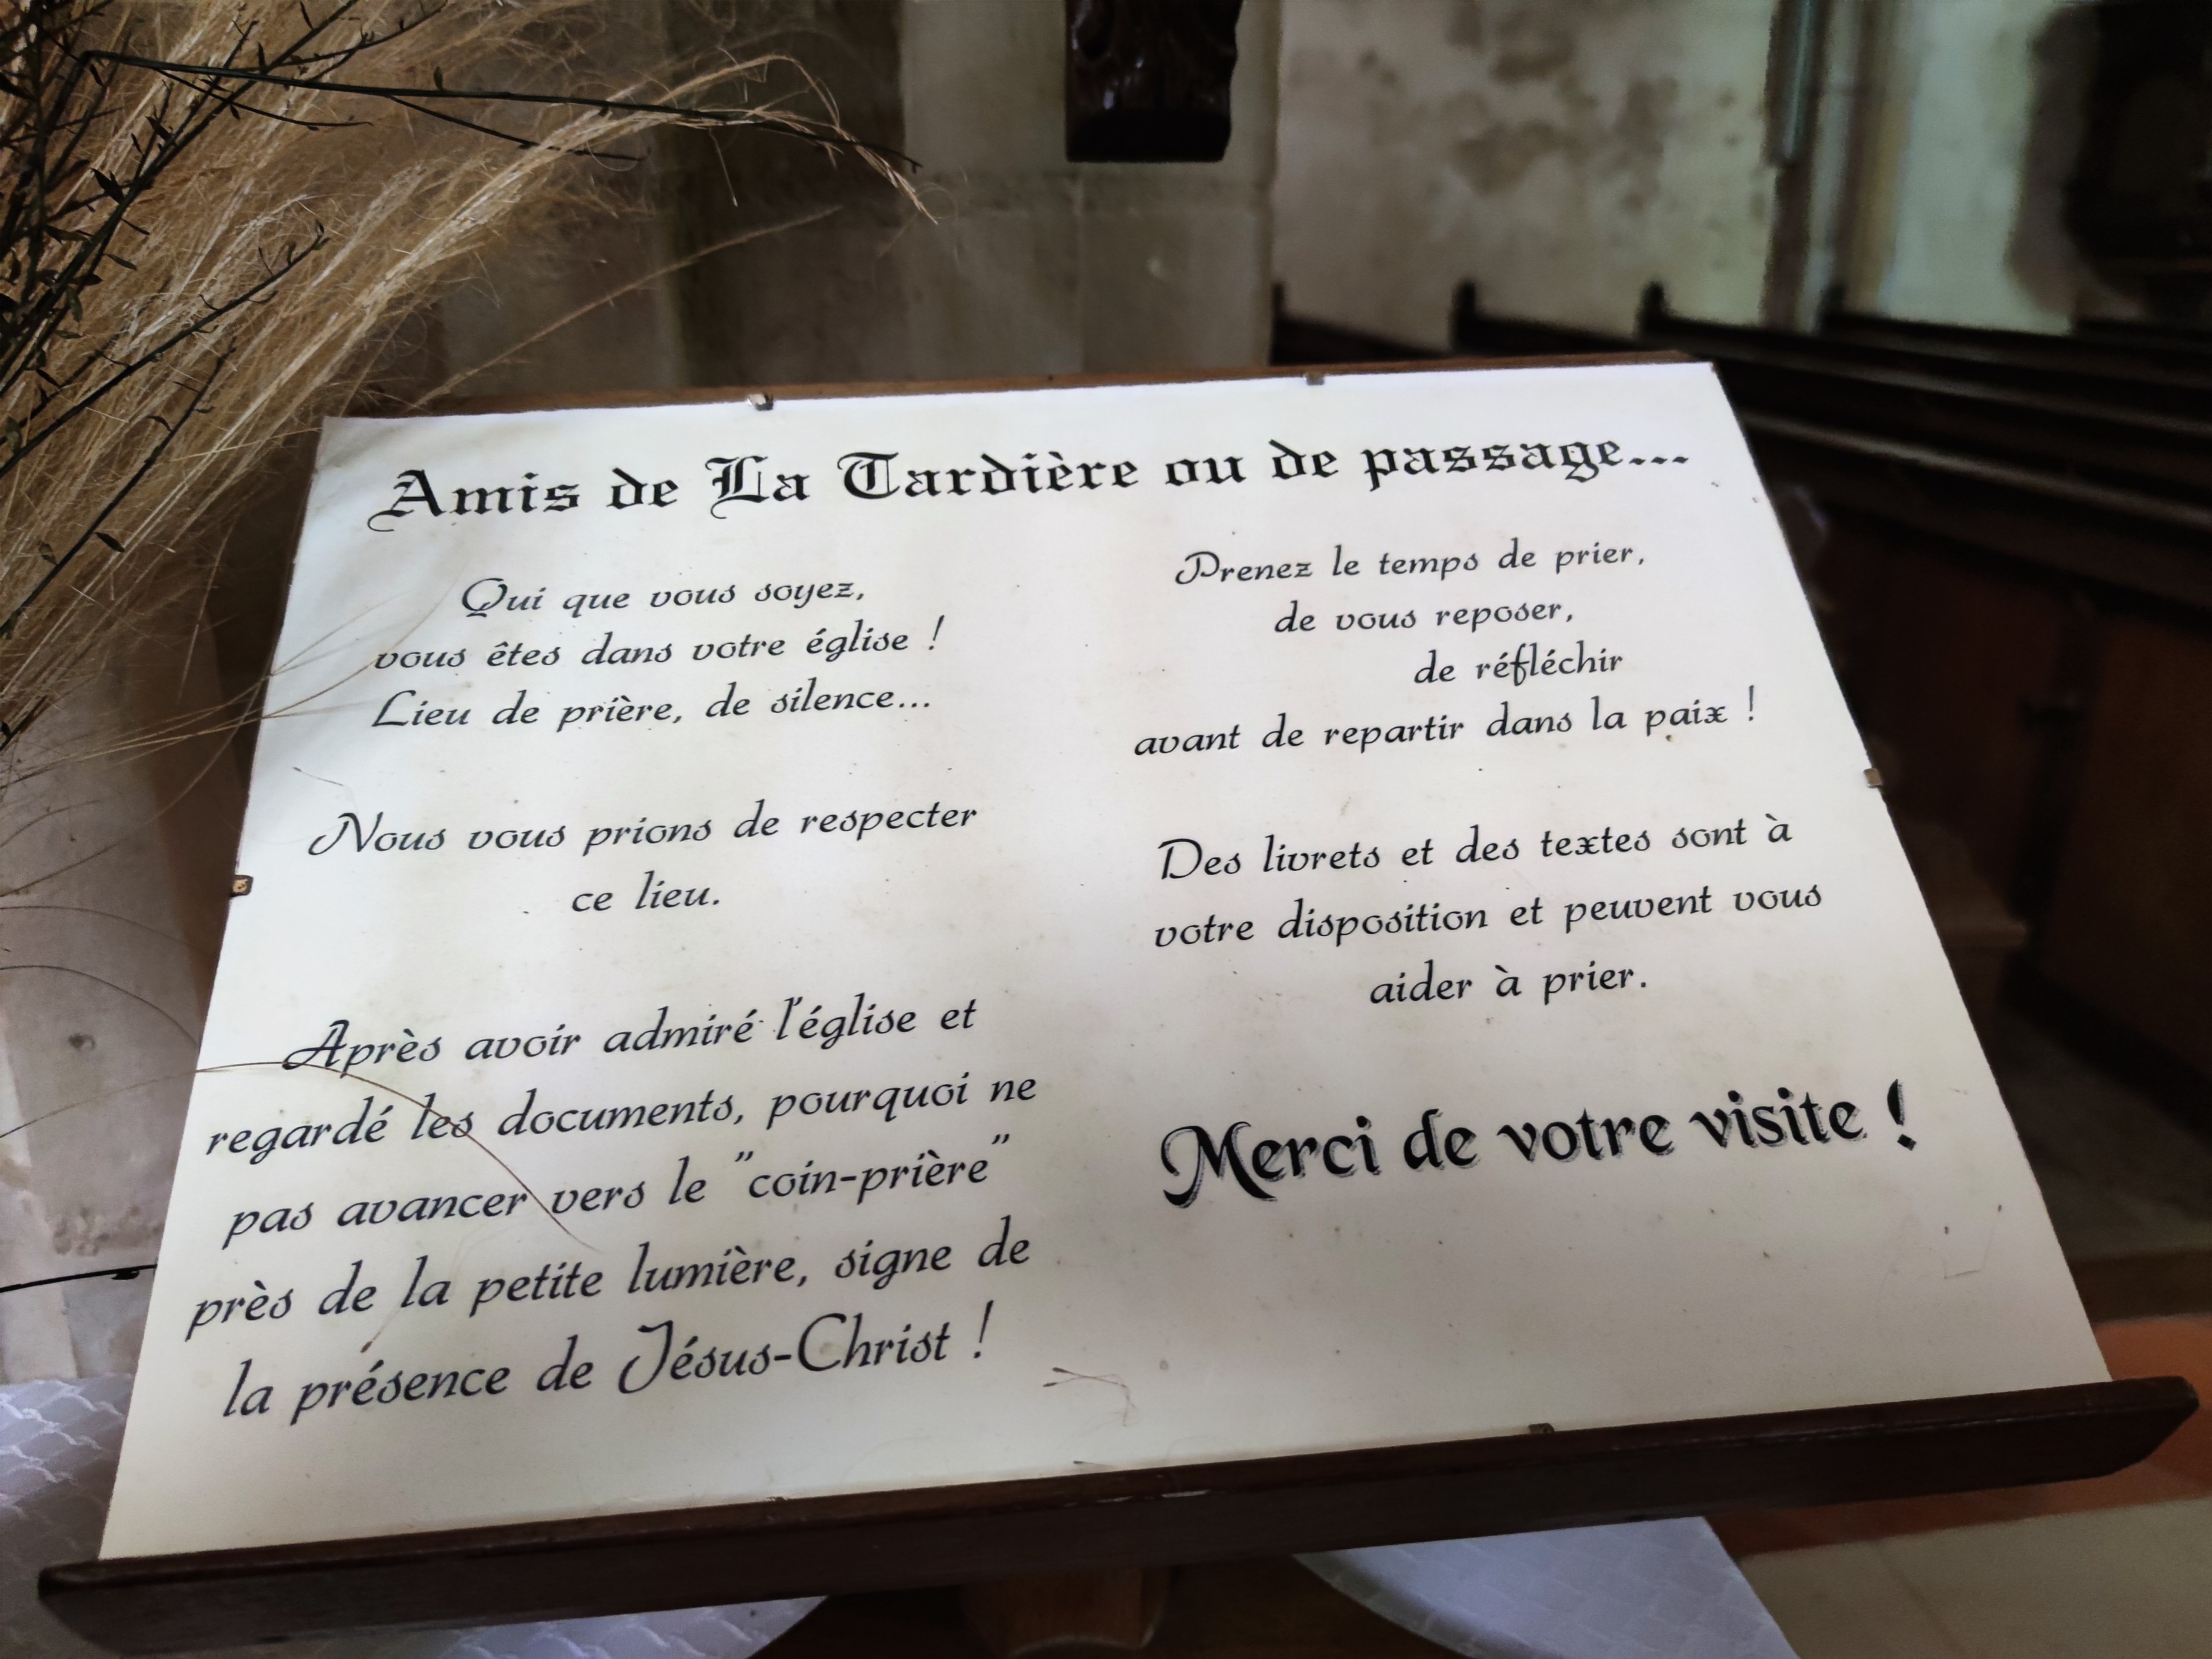 Amis de La Tardière ou de passage...
Qui que vous soyez,
vous êtes dans votre église !
Lieu de prière, de silence...
Nous vous prions de respecter
ce lieu.
Après avoir admiré l'église et
regardé les documents, pourquoi ne
pas avancer vers le "coin-prière"
près de la petite lumière, signe de
la présence de Jésus-Christ !
Prenez le temps de prier,
de vous reposer,
de réfléchir
avant de repartir dans la paix !
Des livrets et des textes sont à
votre disposition et peuvent vous
aider à prier.
Merci de votre visite !